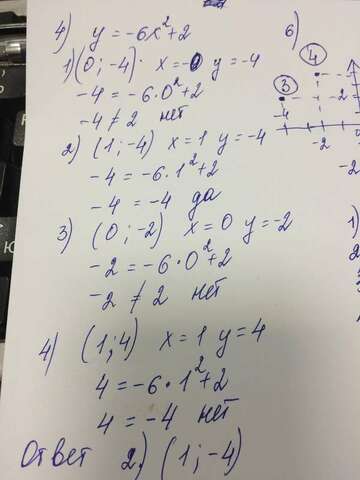 4) y = -6x²+2
1) (0; -4). x=-0 y=-4
-4=-6·0²+2
-4≠2 нет
2) (1;-4) x=1 y=-4
-4=-6·1²+2
-4=-4 да
3) (0;-2) x=0 y=-2
-2=-6·0²+2
-2≠2 нет
4) (1;4) x=1 y=4
4=-6·1²+2
4=-4 нет
Ответ 2) (1;-4)
6)
4
3
-4 -2
-2
1)
2